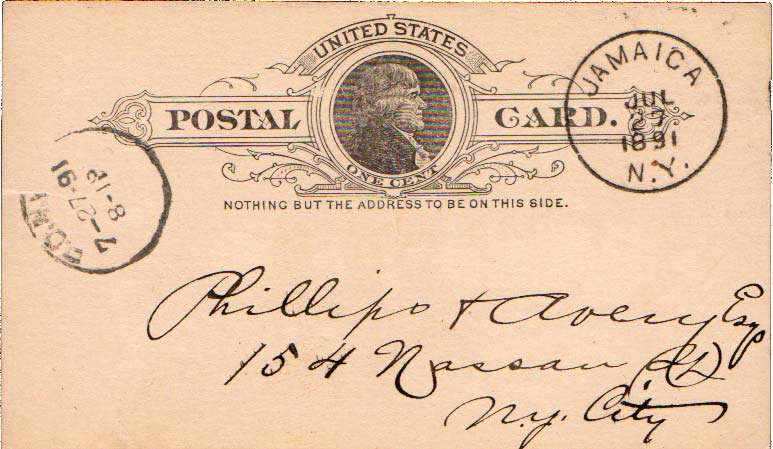 UNITED STATES
POSTAL CARD.
ONE CENT
NOTHING BUT THE ADDRESS TO BE ON THIS SIDE.
JAMAICA
JUL
27
1891
N.Y.
7
-27-91
8-1P
Phillips & Avery Esqs
154 Nassau St
N.Y. City